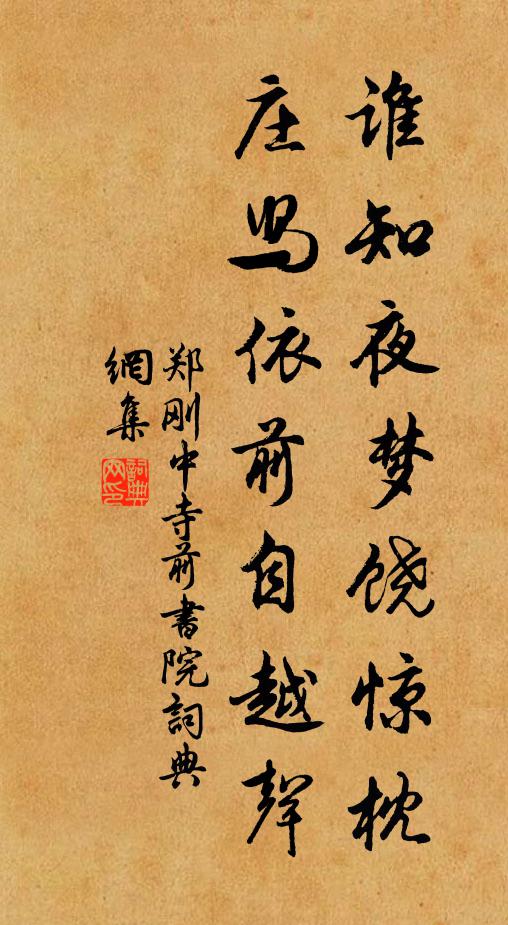 谁知夜梦饶惊枕
庄舄依前自越声
郑刚中寺前书院詞典
網集
詞典网印